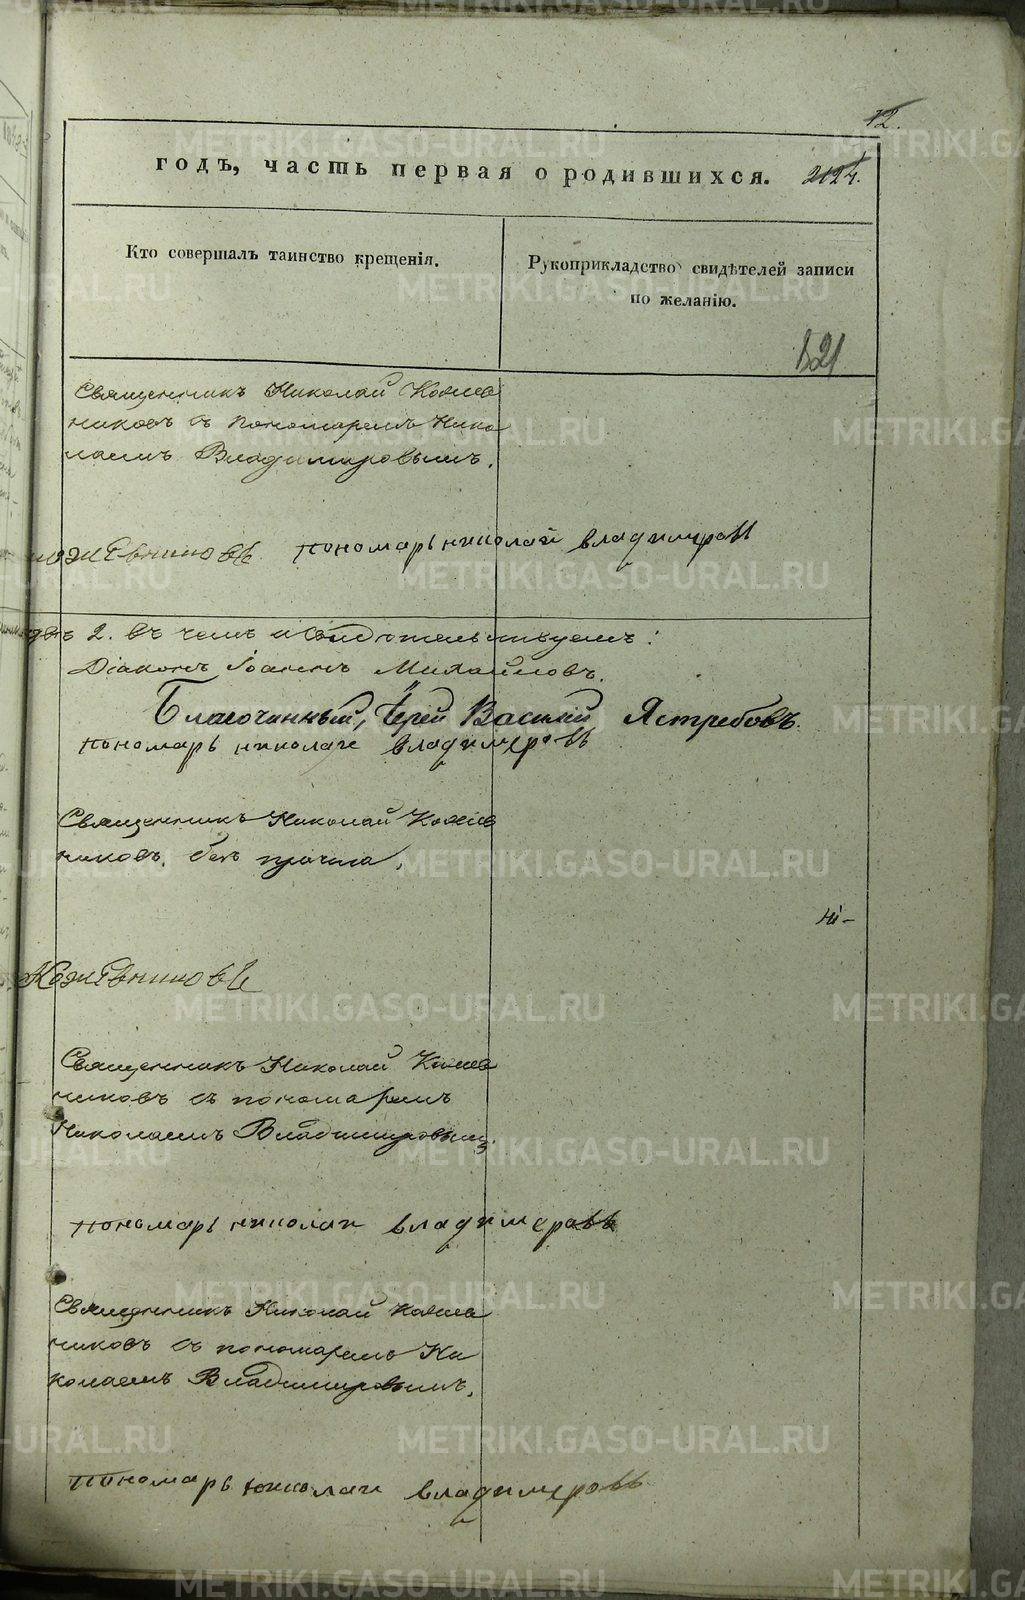 12.
годъ, часть первая о родившихся.
Кто совершалъ таинство крещенія.
Рукоприкладство свидѣтелей записи
по желанію.
121
Священникъ Николай Кожев
никовъ съ пономаремъ Нико
лаемъ Владимировымъ.
Кожевниковъ пономарь николай владимировъ
2. въ чемъ и свидѣтельствуемъ:
Діаконъ Іоаннъ Михайловъ.
Благочинный, Іерей Василій Ястребовъ.
пономарь николаи владимеровъ
Священникъ Николай Кожев
никовъ, безъ причта.
Ні-
Кожевниковъ
Священникъ Николай Кожев
никовъ съ пономаремъ
Николаемъ Владимировымъ.
пономарь николаи владимеровъ
Священникъ Николай Кожев
никовъ съ пономаремъ Ни
колаемъ Владимировымъ.
пономарь николаи владимеровъ
METRIKI.GASO-URAL.RU